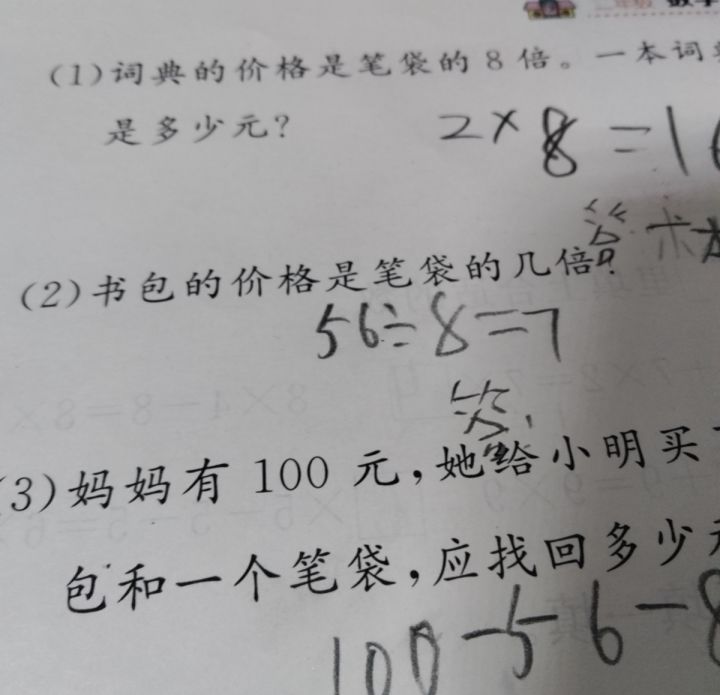 (1)词典的价格是笔袋的8倍。一本词
是多少元?
2×8=1
(2)书包的价格是笔袋的几倍?
56÷8=7
答
(3)妈妈有100元,她给小明买
包和一个笔袋,应找回多少
100-56-8